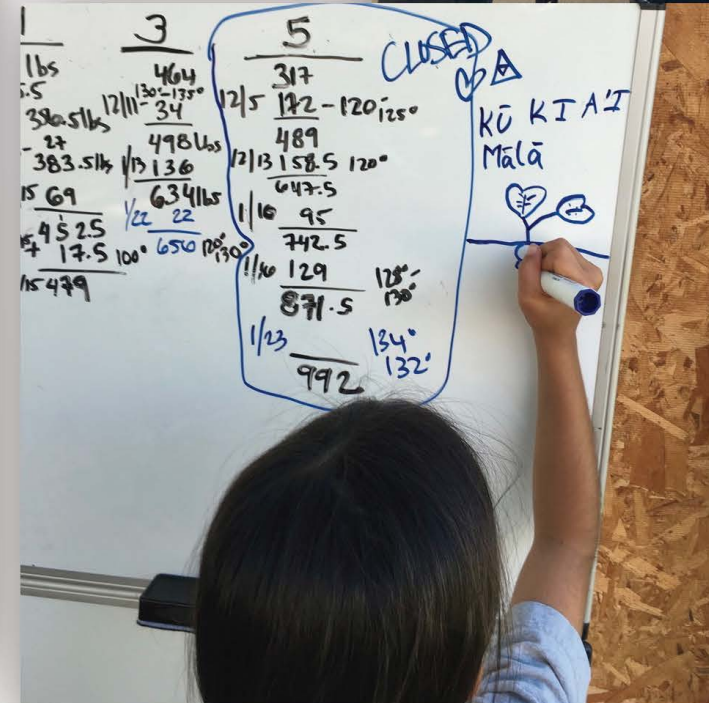 1
lbs
.5
386.5lbs
- 27
383.5lbs
15 69
452.5
+ 17.5 100°
/15 479
3
464
130°-135°
12/11 - 34
498 lbs
1/13 136
634 lbs
1/22 22
656 120°-
130°
5
317
12/5 172 - 120°-
125°
489
12/13 158.5 120°
647.5
1/10 95
742.5
1/16 129 128°-
130°
871.5
1/23 134°
132°
992
CLOSED
KŪ KIAʻI
Mālā